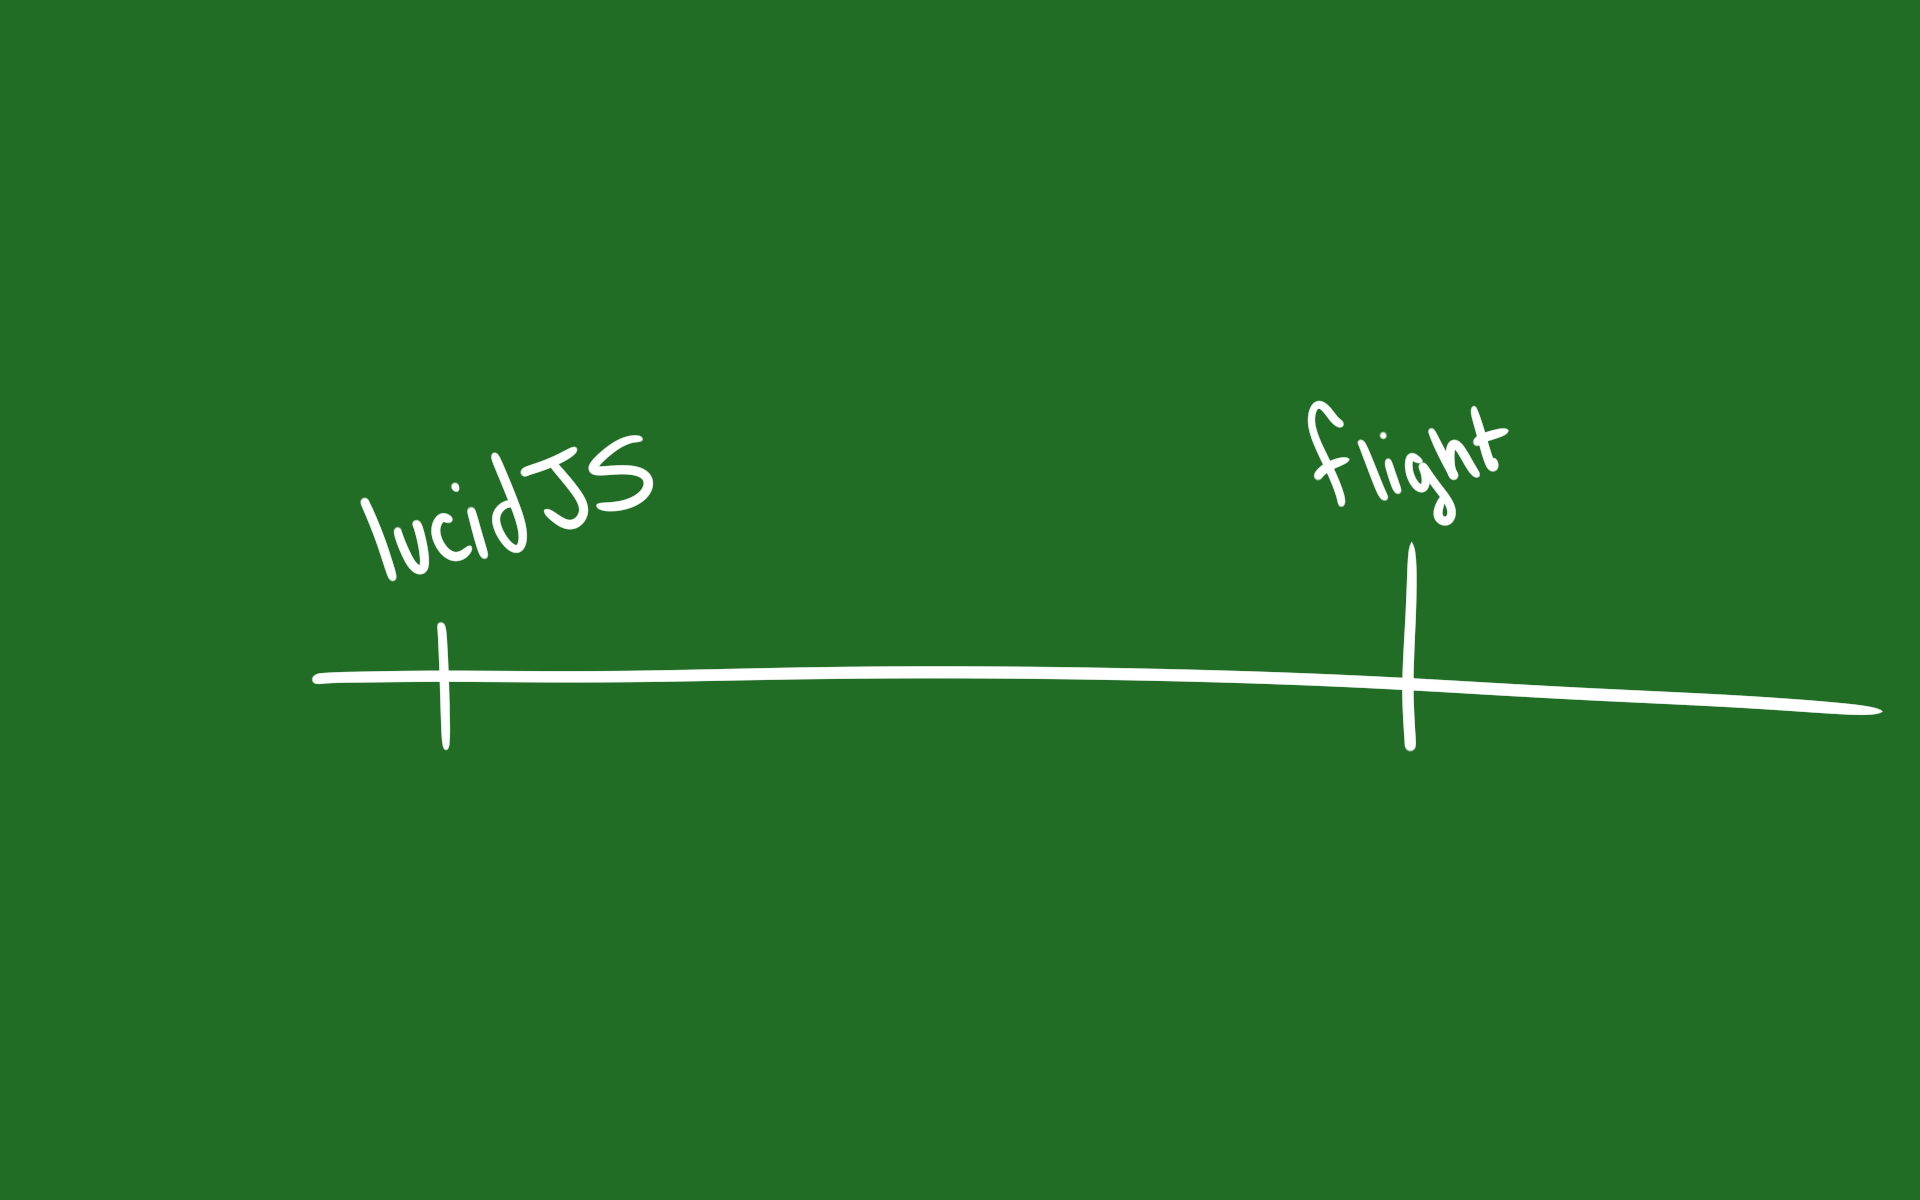 lucidJS
flight